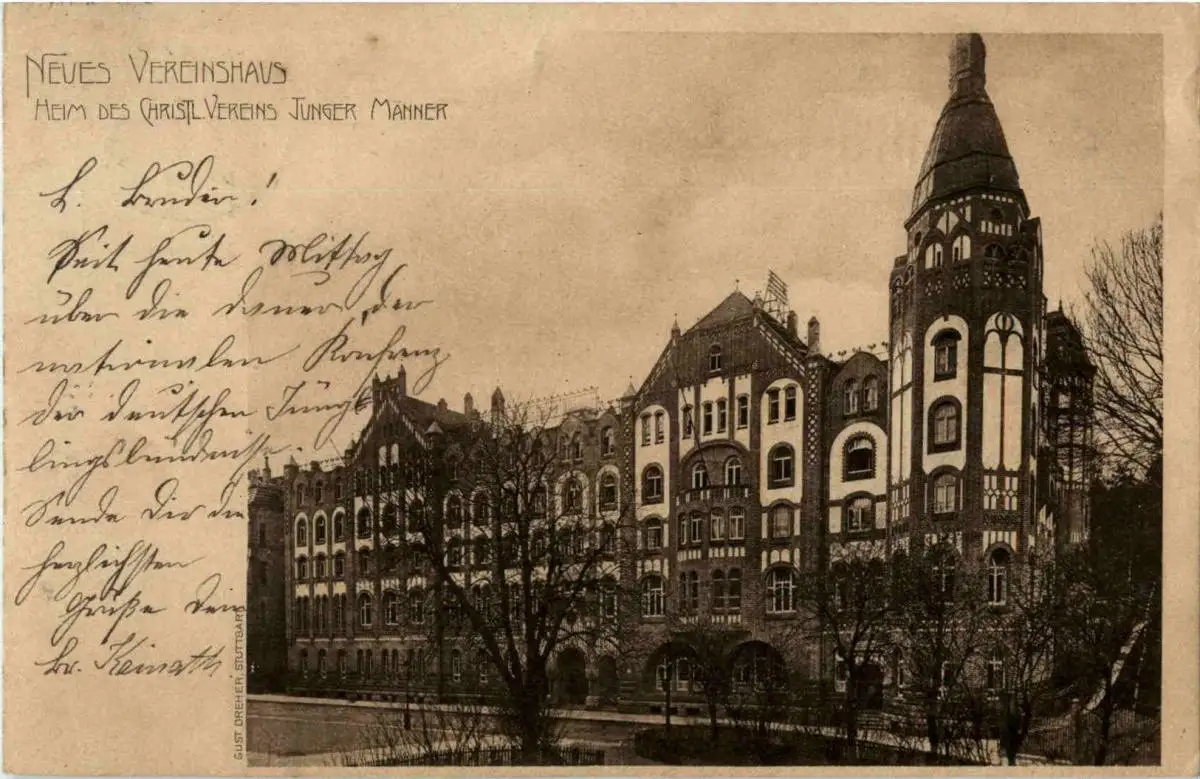 NEUES VEREINSHAUS
HEIM DES CHRISTL. VEREINS JUNGER MÄNNER
L. Bruder!
Seit heute Mittag
über die Dauer der
nationalen Konferenz
der deutschen Jüng-
lingsbündnisse
Sende Dir die
herzlichsten
Grüße Dein
Br. Keinath
GUST DREHER, STUTTGART